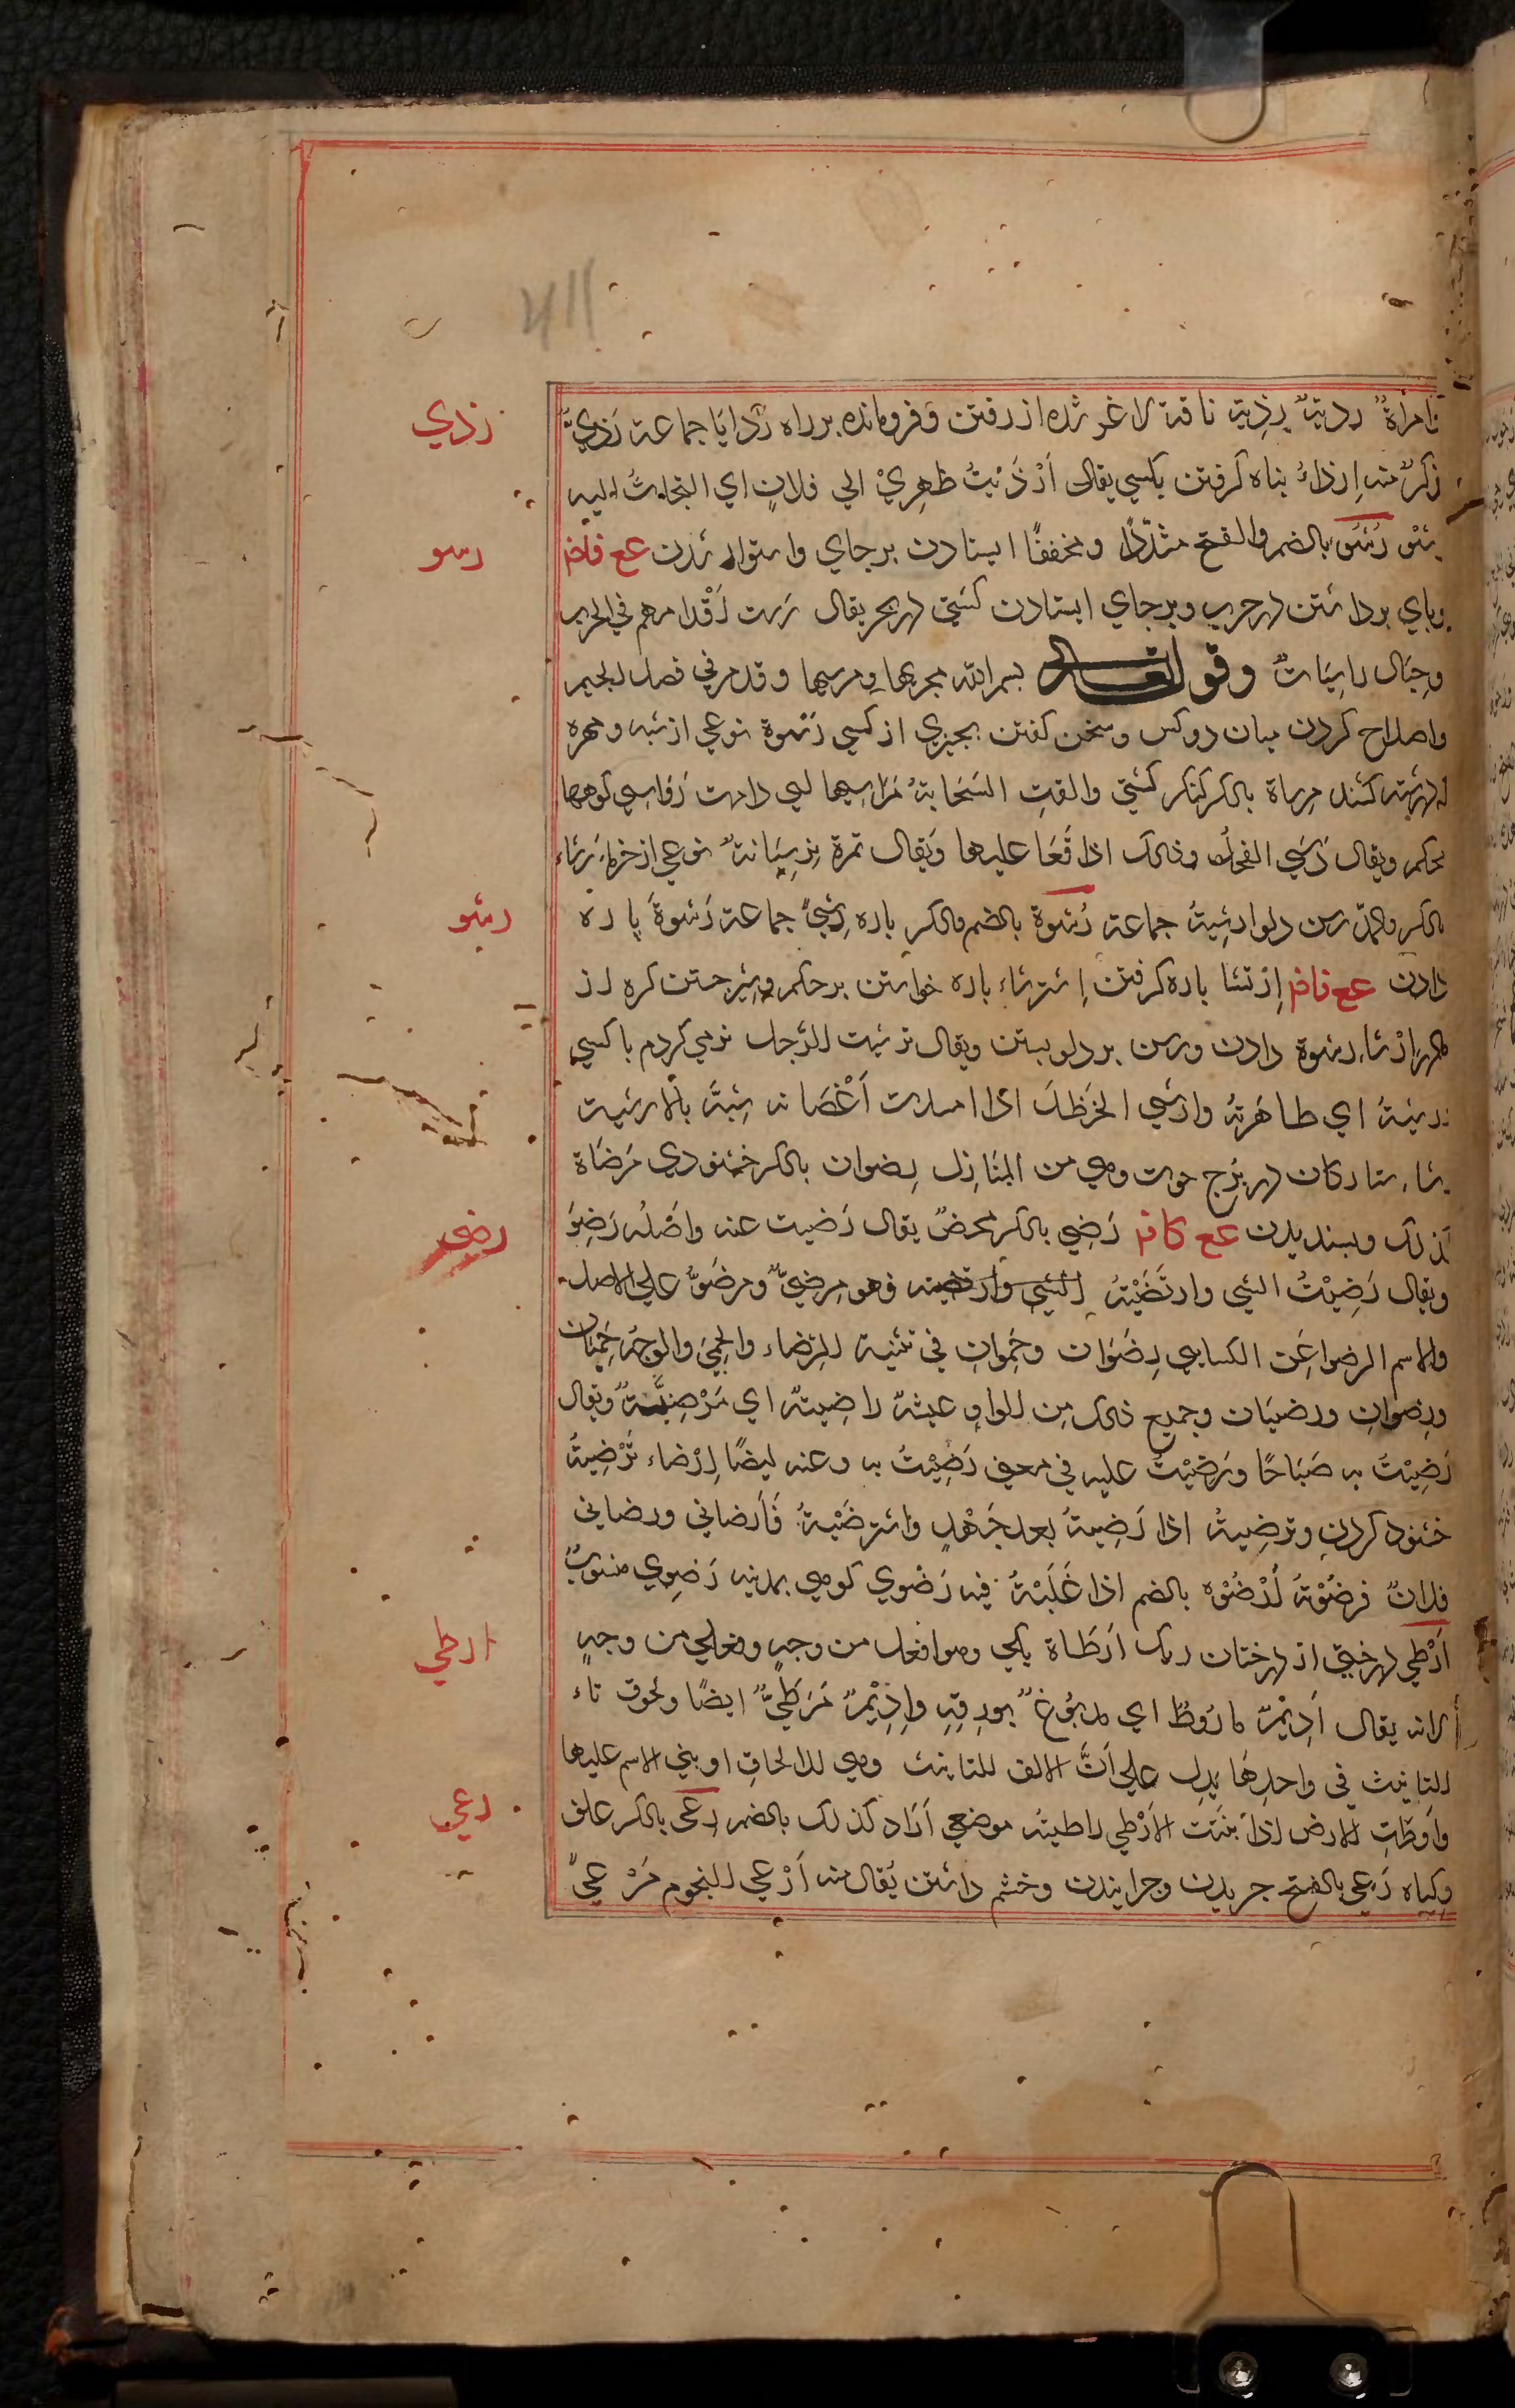 رذي
وامرأة ردية رذية ناقة لاغر شده از رفتن و فرومانده بر راه رذايا جماعة رذي
ذكر منه إرذاء پناه گرفتن بكسي يقال أَرْذَيْتُ ظهري الي فلان اي التجأتُ اليه
رسو
رُسُو بالضم والفتح مشدّدًا ومخففًا ايستادن برجاي واستوار شدن عع فاض
وپاي برداشتن در حرب و برجاي ايستادن كشتي در بحر يقال رست أقدامهم في الحرب
وجبال راسيات وقوله تعالى بسم الله مجريها ومرسيها وقد مر في فصل الجيم
واصلاح كردن ميان دو كس و سخن گفتن بچيزي از كسي رسوة نوعي از شبه و مهره
كه در رشته كنند مرساة بالكسر لنگر كشتي والقت السَحَابة مراسيها اي دامت رَوَاسي كوهها
محكم ويقال رَسَي الفحل وذلك اذا قَعَا عليها ويقال تمرة نرسِيَانة نوعي از خرما رشاء
رشو
بالكسر والمد رسن دلو ارشية جماعة رُشوة بالضم والكسر پاره رشي جماعة رَشوة پاره
دادن عع فاض إرتشا پاره گرفتن إسترشاء پاره خواستن بر حكم و شير جستن كره از
مادر إرشاء رشوة دادن و رسن بر دلو بستن ويقال ترشيت الرجل نرمي كردم با كسي
راشيته اي طاهرته وارشي الحنظل اذا امتدت أغصانه شبه بالارشية
رشاء ستارگان در برج حوت وهي من المنازل رضوان بالكسر خشنودي مَرضَاة
رضي
كذلك و پسنديدن عع كاض رَضِي بالكسر محض يقال رَضيت عنه وأصله رَضِوَ
ويقال رَضِيتُ الشي وارتَضَيْتهُ الشي وارتضيته فهو مرضيٌّ ومرضوٌّ علي الاصل
والاسم الرضوا عن الكسايي رِضَوَان وحِمَوان في تثنية الرضاء والحِمي والوجه حِمَيان
ورضوان ورضيان وجميع ذلك من الواو عيشة راضية اي مَرْضِيَّة ويقال
رَضِيْتُ به صَبَاحًا ورَضِيْتُ عليه في معني رَضِيْتُ به وعنه ايضًا إرْضاء تَرْضِية
خشنود كردن وترضيتهُ اذا رَضِيتهُ بعد جَهْدٍ واسترضَيْتهُ فَأرضاني ورضاني
فلان فرضَوْتهُ أرْضُوْه بالضم اذا غَلَبْتهُ فيه رَضوي كوهي بمدينه رَضَوِي منسوب
ارطي
أَرْطي درختي از درختان ريگ ارَطَاة يكي وهو افعل من وجهٍ وفعلي من وجهٍ
لانه يقال أديمٌ ماروطٌ اي مدبُوغ بورقه وأديمٌ مَرطيٌّ ايضًا ولحوق تاء
التانيث في واحدها يدل علي أنَّ الالف للتانيث وهي للالحاق او بني الاسم عليها
رعي
وأرطت الارض اذا نبتت الأرْطي راطية موضعي أراد كذلك بالضم رِعْى بالكسر علف
وگياه رَعي بالفتح چريدن و چرانيدن و خشم داشتن يقال منه أرْعي النجوم مَرْعيً